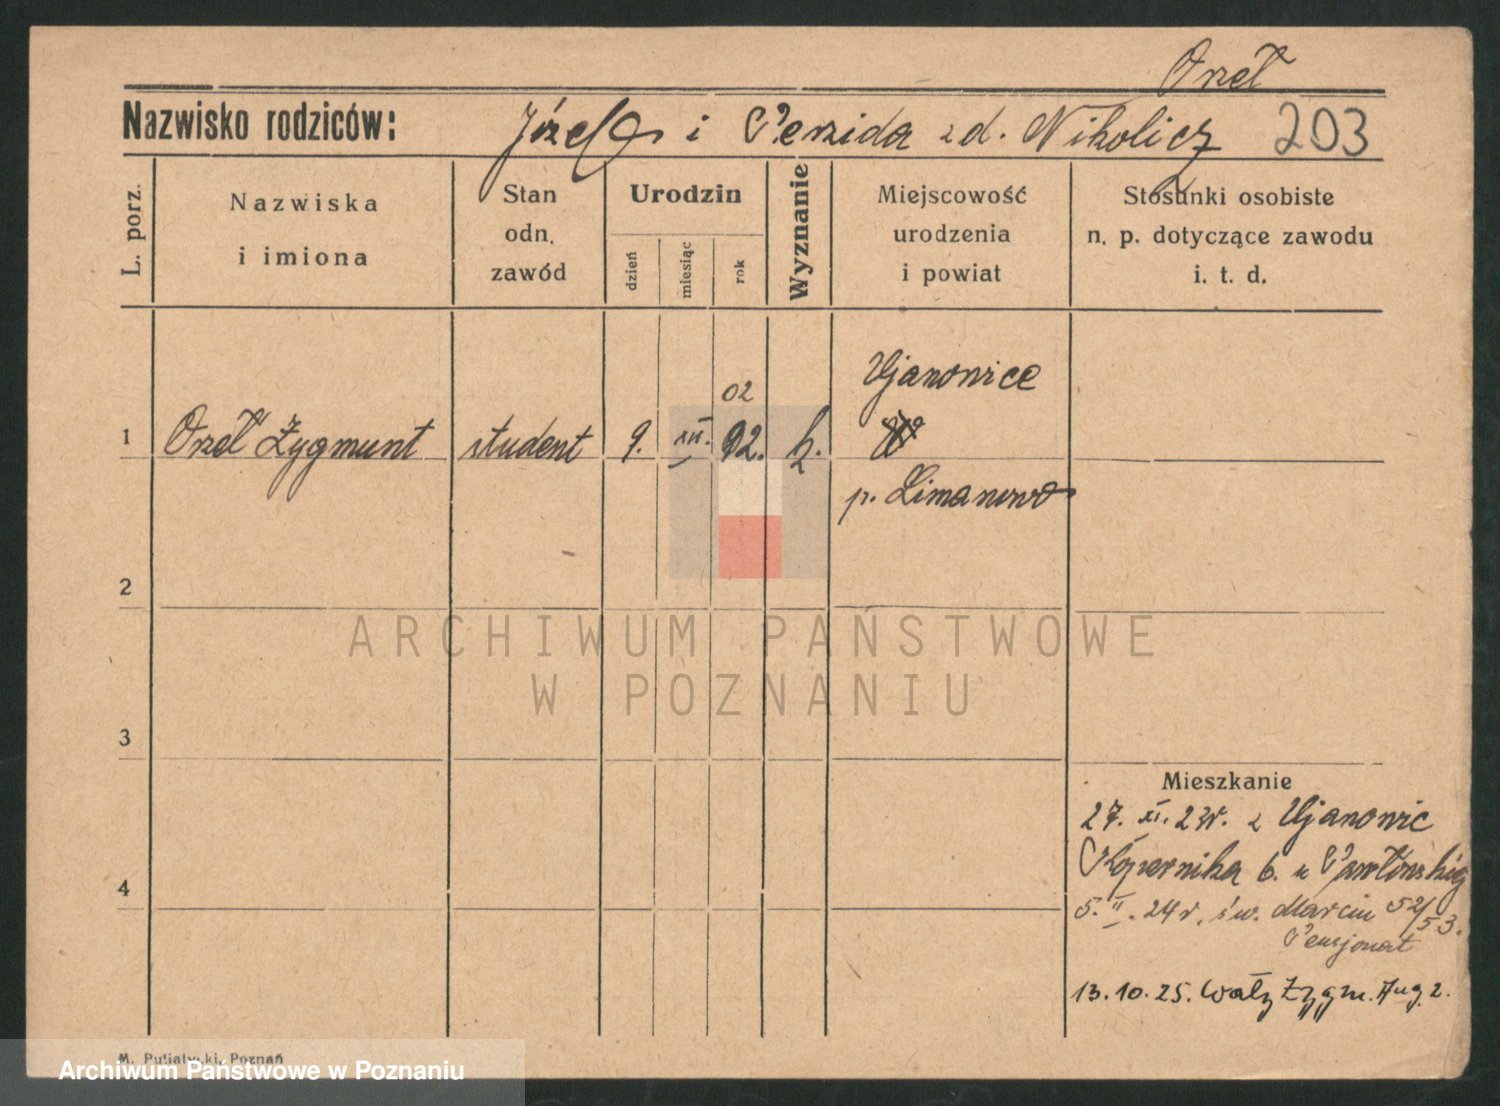 Orzeł
Nazwisko rodziców: Józef i Perzida z d. Nikolicz 203
L. porz.
Nazwiska
i imiona
Stan
odn.
zawód
Urodzin
dzień
miesiąc
rok
Wyznanie
Miejscowość
urodzenia
i powiat
Stosunki osobiste
n. p. dotyczące zawodu
i. t. d.
Ujanowice
02
1 Orzeł Zygmunt student 9. XII. 02. k.
p. Limanowa
2
3
4
Mieszkanie
27. XI. 23r. z Ujanowic
Kopernika 6. u Pawłowskiej
5. II. 24 r. św. Marcin 52/53.
Pensjonat
13.10.25. Wały Zygm. Aug. 2.
M. Putiatycki, Poznań
ARCHIWUM PAŃSTWOWE
W POZNANIU
Archiwum Państwowe w Poznaniu